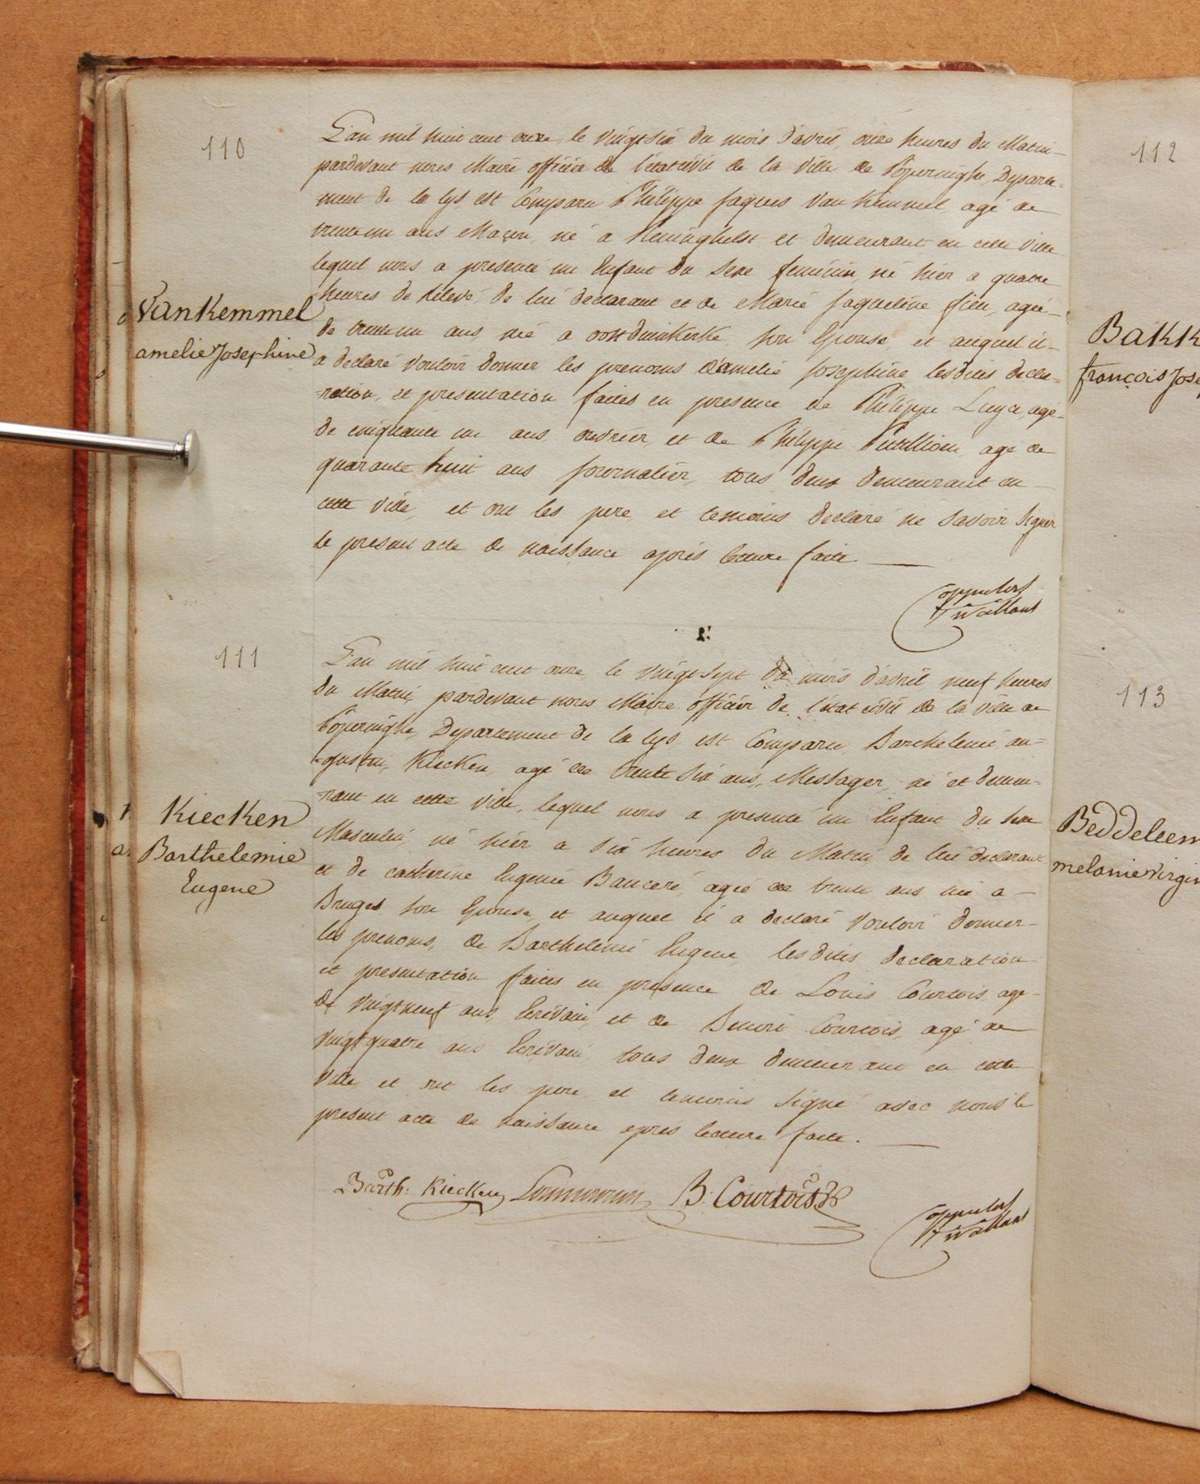 110
VanKemmel
amelie Josephine
L'an mil huit cent onze, le vingt six du mois d'avril, onze heures du Matin
pardevant nous Maire officier de l'état civil de la Ville de Poperinghe, Departe-
ment de la Lys est Comparu Philippe Jaques Van Kemmel agé de
trente un ans Maçon, né a Reninghelst et demeurant en cette ville
lequel nous a presenté un Enfant du Sexe feminin, né hier a quatre
heures de Relevé, de lui declarant et de Marie Jaqueline agée
de trente un ans née a oostduinkerke son Epouse, et auquel il
a declaré Vouloir donner les prenoms d'amelie Josephine lesdites decla-
ration, et presentation faites en presence de Philippe agé
de cinquante un ans ouvrier et de Philippe agé de
quarante huit ans Journalier, tous deux demeurant en
cette Ville, et ont les pere et temoins declaré ne Savoir Signer
le present acte de naissance après lecture faite
111
Kiecken
Barthelemie
Eugene
L'an mil huit cent onze le vingt sept du mois d'avril neuf heures
du Matin, pardevant nous Maire officier de l'état civil de la ville de
Poperinghe, Departement de la Lys est Comparu Barthelemie au-
gustin Kiecken, agé de trente six ans, Messager, né et demeu-
rant en cette Ville, lequel nous a presenté un Enfant du Sexe
Masculin, né hier a six heures du Matin de lui declarant
et de catherine Eugenie agée de trente ans née a
Bruges son Epouse, et auquel il a declaré Vouloir donner
les prenoms, de Barthelemie Eugene lesdites declaration
et presentation faites en presence de Louis Courtois agé
de vingt neuf ans, Ecrivain et de Benoit Courtois, agé de
vingt quatre ans Ecrivain tous deux demeurant en cette
Ville et ont les pere et temoins signé avec nous le
present acte de naissance après lecture faite.
Barth: Kiecken B: Courtois
112
Bakk
françois Jose
113
Beddeleem
melanie Virgin